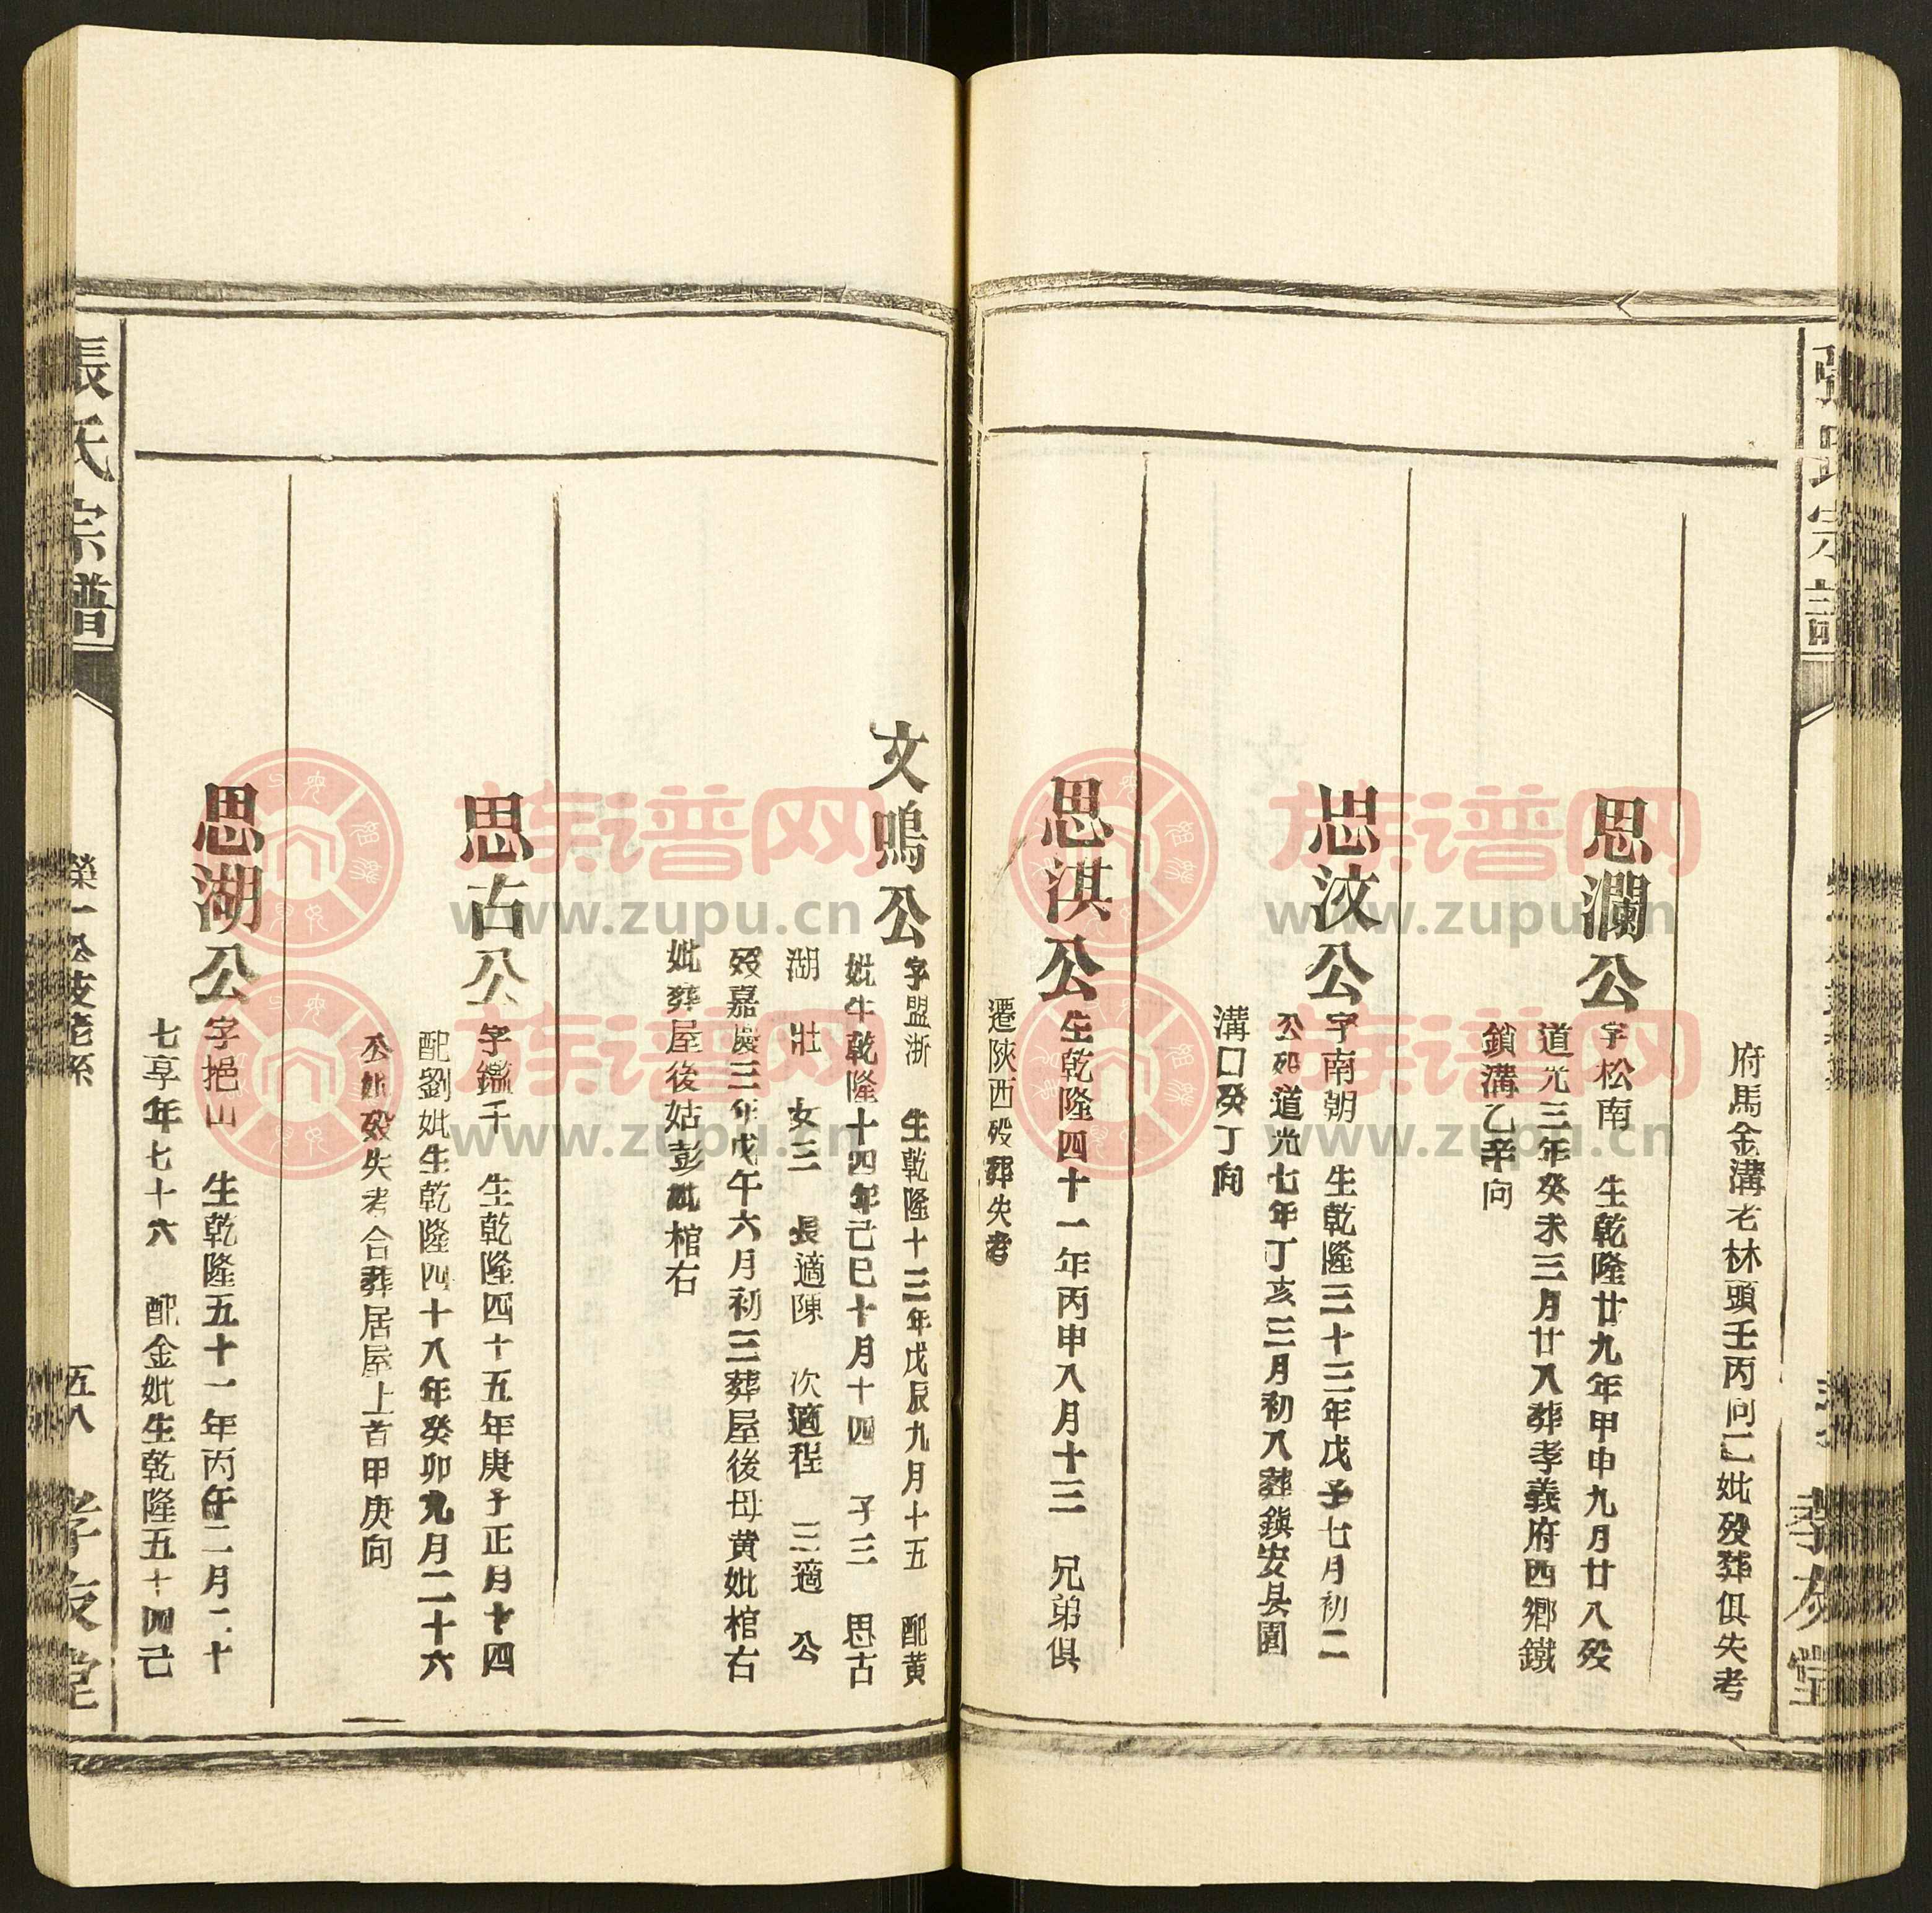 府馬金溝老林頭壬丙向二妣歿葬俱失考
思瀾公
字松南 生乾隆廿九年甲申九月廿八歿
道光三年癸未三月廿八葬孝義府西鄉鐵
鎖溝乙辛向
思汶公
字南朝 生乾隆三十三年戊子七月初二
公歿道光七年丁亥三月初八葬鎮安县園
溝口癸丁向
思淇公
生乾隆四十一年丙申八月十三 兄弟俱
遷陝西歿葬失考
文鳴公
字盟浙 生乾隆十三年戊辰九月十五 配黄
妣生乾隆十四年己巳十月十四 子三 思古
湖 壯 女三 長適陳 次適程 三適 公
歿嘉慶三年戊午六月初三葬屋後母黄妣棺右
妣葬屋後姑彭妣棺右
思古公
字鑑千 生乾隆四十五年庚子正月十四
配劉妣生乾隆四十八年癸卯九月二十六
公妣歿失考合葬居屋上首甲庚向
思湖公
字挹山 生乾隆五十一年丙午二月二十
七享年七十六 配金妣生乾隆五十四己
張氏宗譜
榮一公支茂系
五八
孝友堂
族谱网
www.zupu.cn
族谱网
www.zupu.cn
族谱网
www.zupu.cn
族谱网
www.zupu.cn